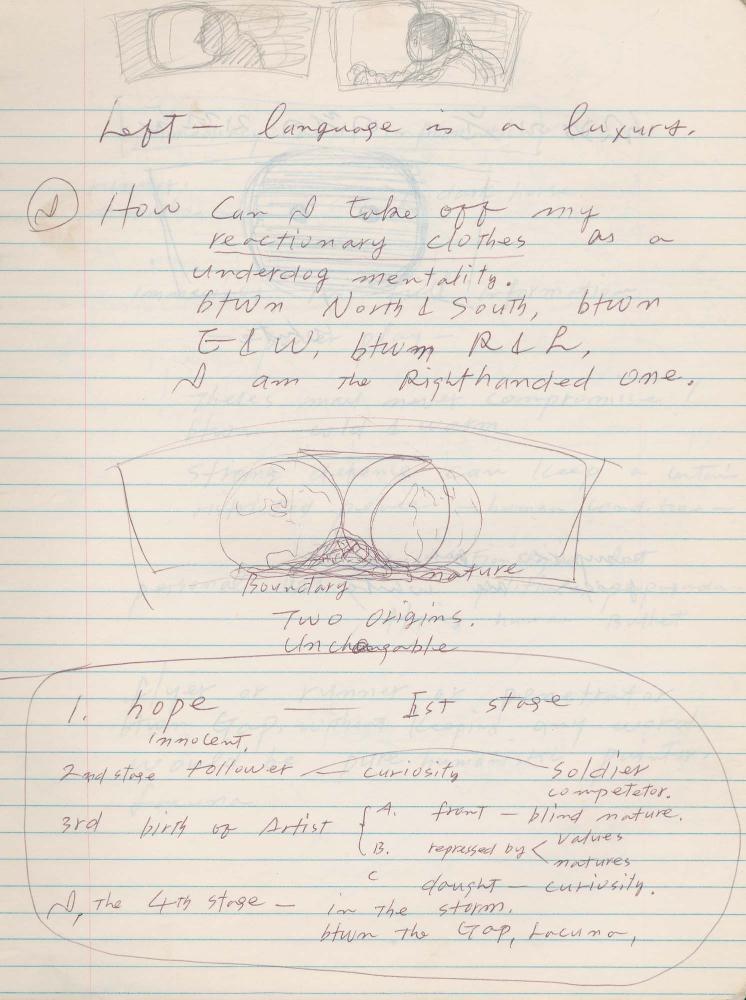 Left — language is a luxury.
I How Can I take off my
reactionary clothes as a
underdog mentality.
btwn North & South, btwn
E & W, btwn R & L,
I am the Righthanded one.
Boundary nature
Two origins.
Unchangable
1. hope — Ist stage
innocent,
2nd stage follower — curiosity — soldier
competetor.
3rd birth of Artist { A. front — blind nature.
B. repressed by < values
natures
C daught — curiosity.
I, The 4th stage — in the storm.
btwn the Gap, Lacuna,